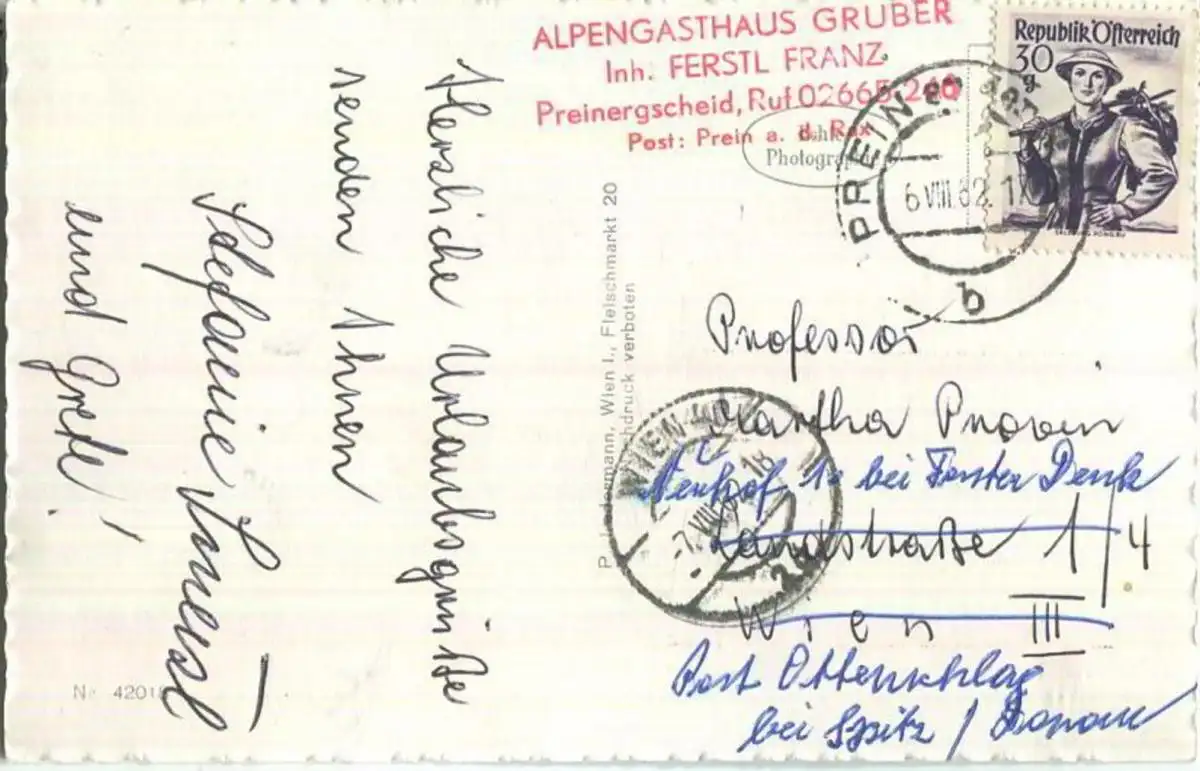 ALPENGASTHAUS GRUBER
Inh. FERSTL FRANZ
Preinergscheid, Ruf 02665 246
Post: Prein a. d. Rax
Republik Österreich
30 g
PREIN
6.VIII.62
b
Photograph
P. Ledermann, Wien I., Fleischmarkt 20
Nachdruck verboten
Herzliche Urlaubsgrüße
senden Ihnen
Stefanie
und Grete!
Professor
Martha
Neuhof 10 bei Förster Denk
Landstraße 1/4
Wien III
Post Ottenschlag
bei Spitz / Donau
WIEN
7.VIII
18
2a
Nr 42018